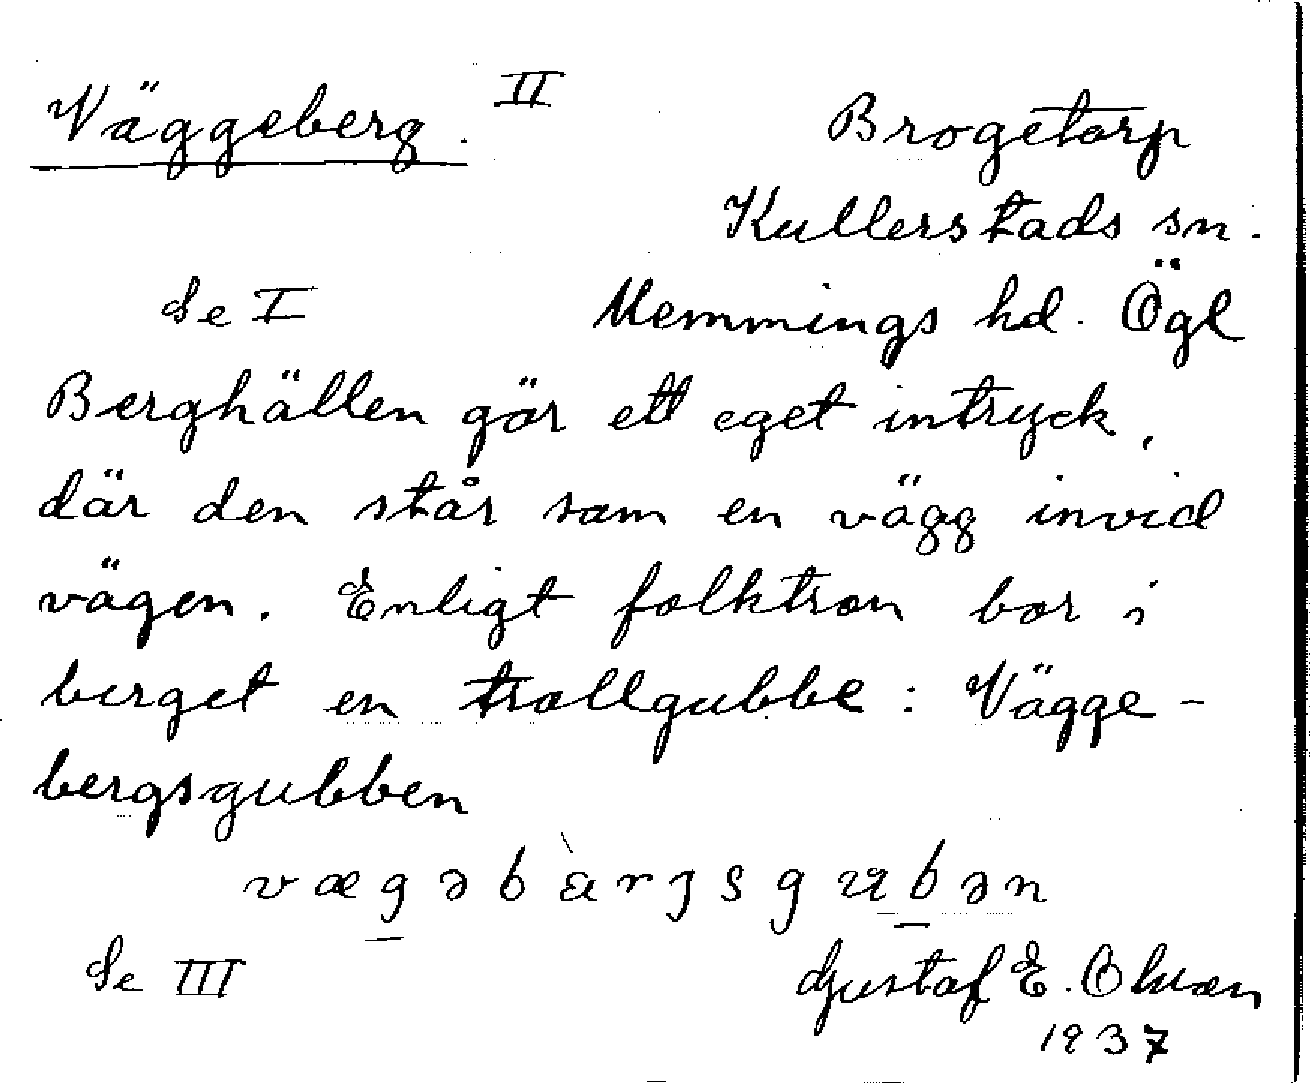 Väggeberg. II
Brogetorp
Kullerstads sn.
Se I Memmings hd. Ögl
Berghällen gör ett eget intryck,
där den står som en vägg invid
vägen. Enligt folktron bor i
berget en trollgubbe: Vägge-
bergsgubben
Se III Gustaf E. Olsson
1937